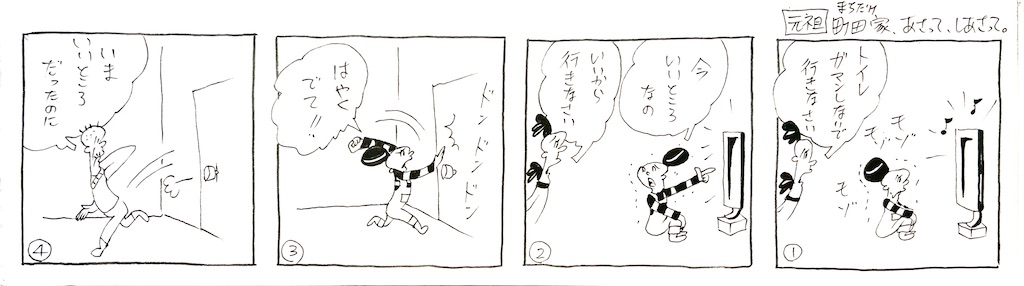 まちだけ
元祖 町田家、あさって、しあさって。
トイレ
ガマンしないで
行きなさい
モゾ
モゾ
モゾ
①
今
いいところ
なの
いいから
行きなさい
②
ドンドンドンドン
はやく
でて!!
③
いま
いいところ
だったのに
④